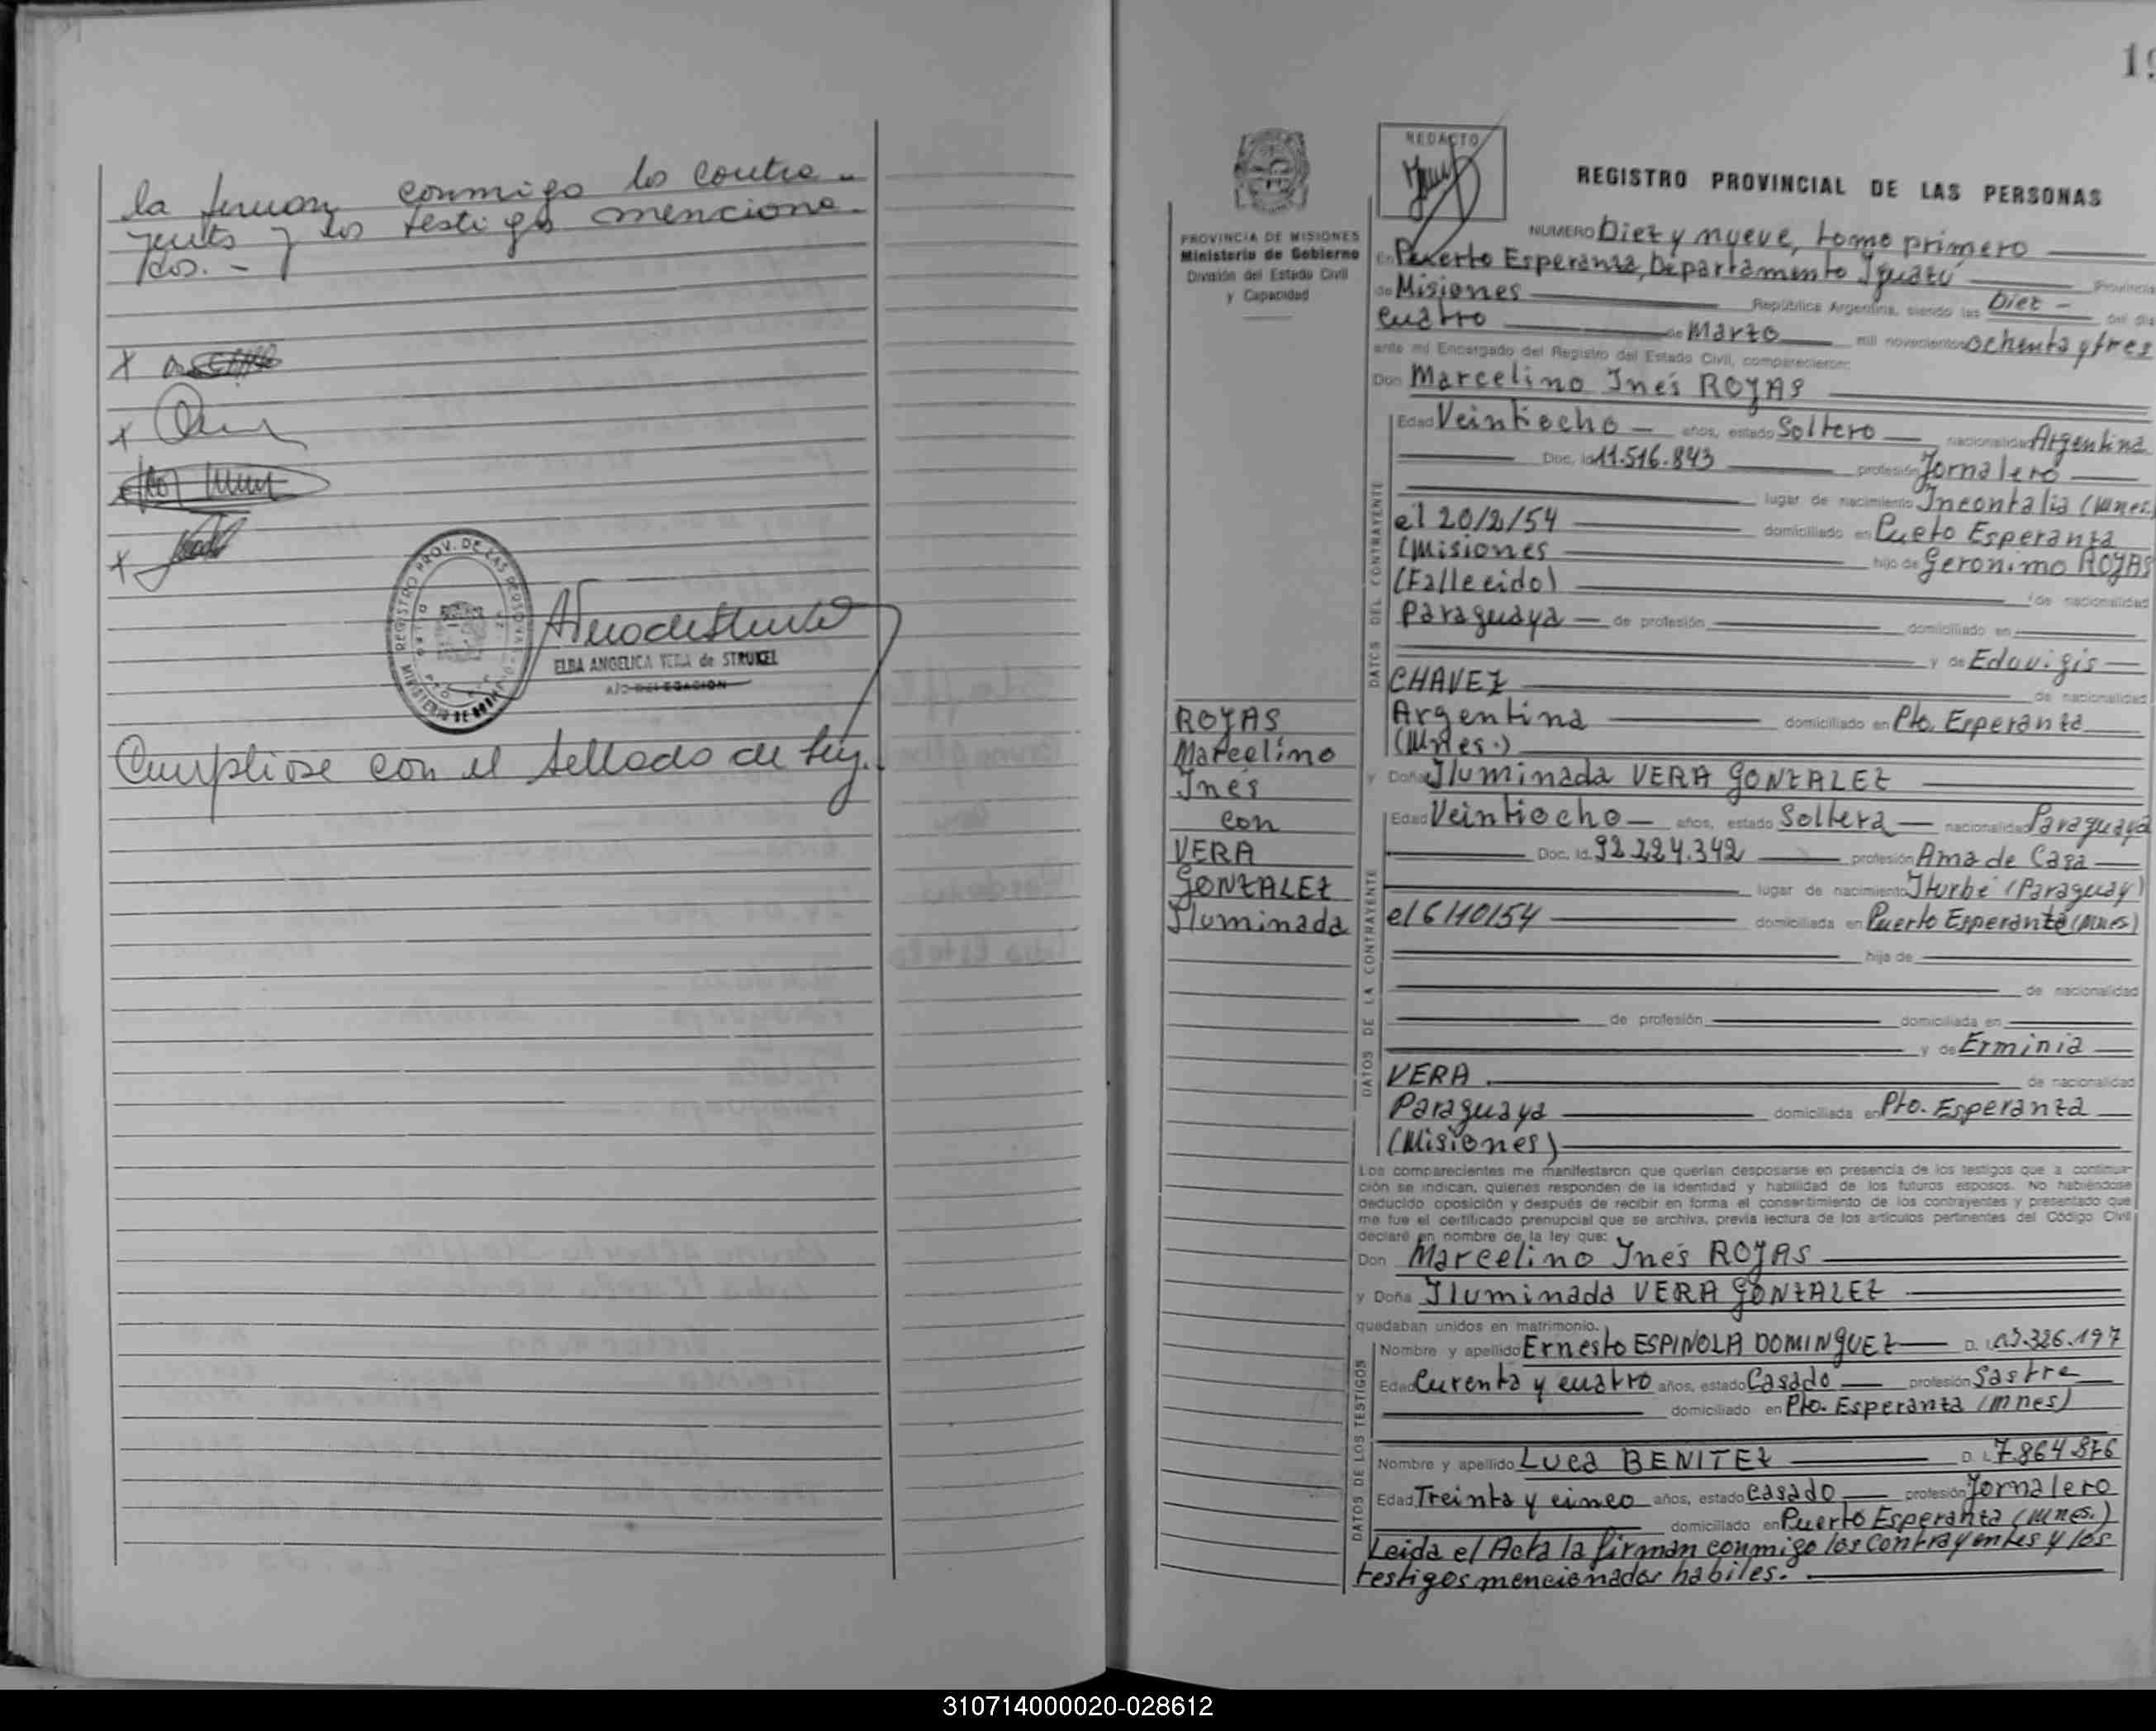 la firman conmigo los contra-
yentes y los testigos menciona-
dos.-
REGISTRO PROV. DE LAS PERSONAS
MINISTERIO DE
ELBA ANGELICA VERA de STRUKEL
A/C DELEGACION
Cumpliose con el sellado de ley.
19
REDACTO
REGISTRO PROVINCIAL DE LAS PERSONAS
PROVINCIA DE MISIONES
Ministerio de Gobierno
División del Estado Civil
y Capacidad
NUMERO Diez y nueve, tomo primero
En Puerto Esperanza, Departamento Iguazú Provincia
de Misiones República Argentina, siendo las Diez - del día
cuatro de Marzo mil novecientos ochenta y tres
ante mí Encargado del Registro del Estado Civil, comparecieron:
Don Marcelino Inés ROJAS
DATOS DEL CONTRAYENTE
Edad Veintiocho años, estado Soltero nacionalidad Argentina
Doc. Id 11.516.843 profesión Jornalero
lugar de nacimiento Incontalia (Mnes.
el 20/2/54 domiciliado en Pueto Esperanza
(Misiones hijo de Geronimo ROJAS
(Fallecido) de nacionalidad
Paraguaya de profesión domiciliado en
y de Eduvigis
CHAVEZ de nacionalidad
Argentina domiciliado en Pto. Esperanza
(Mnes.)
ROJAS
Marcelino
Inés
con
VERA
GONZALEZ
Iluminada
y Doña Iluminada VERA GONZALEZ
DATOS DE LA CONTRAYENTE
Edad Veintiocho años, estado Soltera nacionalidad Paraguaya
Doc. Id. 92.224.342 profesión Ama de Casa
lugar de nacimiento Iturbe (Paraguay)
el 6/10/54 domiciliada en Puerto Esperanza (Mnes)
hija de
de nacionalidad
de profesión domiciliada en
y de Erminia
VERA de nacionalidad
Paraguaya domiciliada en Pto. Esperanza
(Misiones)
Los comparecientes me manifestaron que querían desposarse en presencia de los testigos que a continua-
ción se indican, quienes responden de la identidad y habilidad de los futuros esposos. No habiéndose
deducido oposición y después de recibir en forma el consentimiento de los contrayentes y presentado que
me fue el certificado prenupcial que se archiva, previa lectura de los artículos pertinentes del Código Civil
declaré en nombre de la ley que:
Don Marcelino Inés ROJAS
y Doña Iluminada VERA GONZALEZ
quedaban unidos en matrimonio.
DATOS DE LOS TESTIGOS
Nombre y apellido Ernesto ESPINOLA DOMINGUEZ D. I.
Edad Curenta y cuatro años, estado Casado profesión Sastre
domiciliado en Pto. Esperanza (mnes)
Nombre y apellido Luca BENITEZ D. I. 7.864.876
Edad Treinta y cinco años, estado casado profesión Jornalero
domiciliado en Puerto Esperanza (Mnes.)
Leida el Acta la firman conmigo los contrayentes y los
testigos mencionados habiles.
310714000020-028612